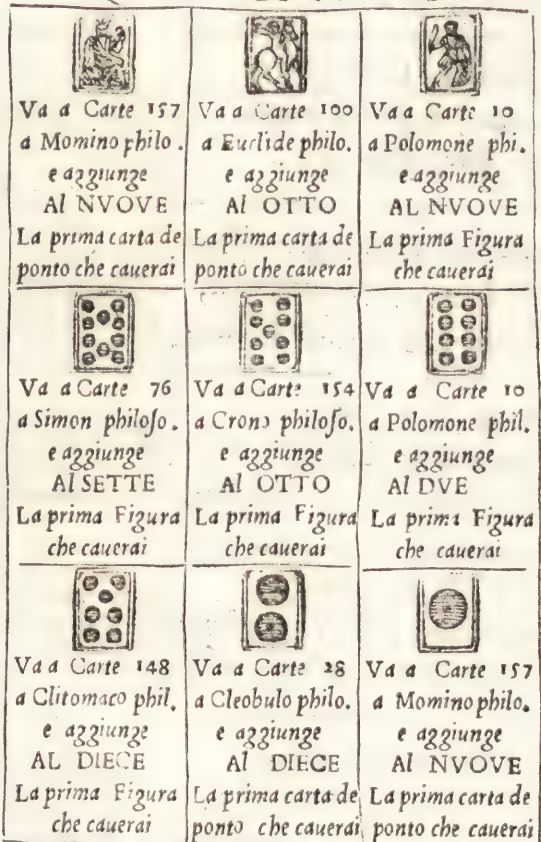 Va a Carte 157
a Momino philo.
e aggiunge
Al NVOVE
La prima carta de
ponto che cauerai
Va a Carte 100
a Euclide philo.
e aggiunge
Al OTTO
La prima carta de
ponto che cauerai
Va a Carte 10
a Polomone phi.
e aggiunge
AL NVOVE
La prima Figura
che cauerai
Va a Carte 76
a Simon philoſo.
e aggiunge
Al SETTE
La prima Figura
che cauerai
Va a Carte 154
a Crono philoſo.
e aggiunge
Al OTTO
La prima Figura
che cauerai
Va a Carte 10
a Polomone phil.
e aggiunge
Al DVE
La prima Figura
che cauerai
Va a Carte 148
a Clitomaco phil.
e aggiunge
AL DIECE
La prima Figura
che cauerai
Va a Carte 28
a Cleobulo philo.
e aggiunge
Al DIECE
La prima carta de
ponto che cauerai
Va a Carte 157
a Momino philo.
e aggiunge
Al NVOVE
La prima carta de
ponto che cauerai